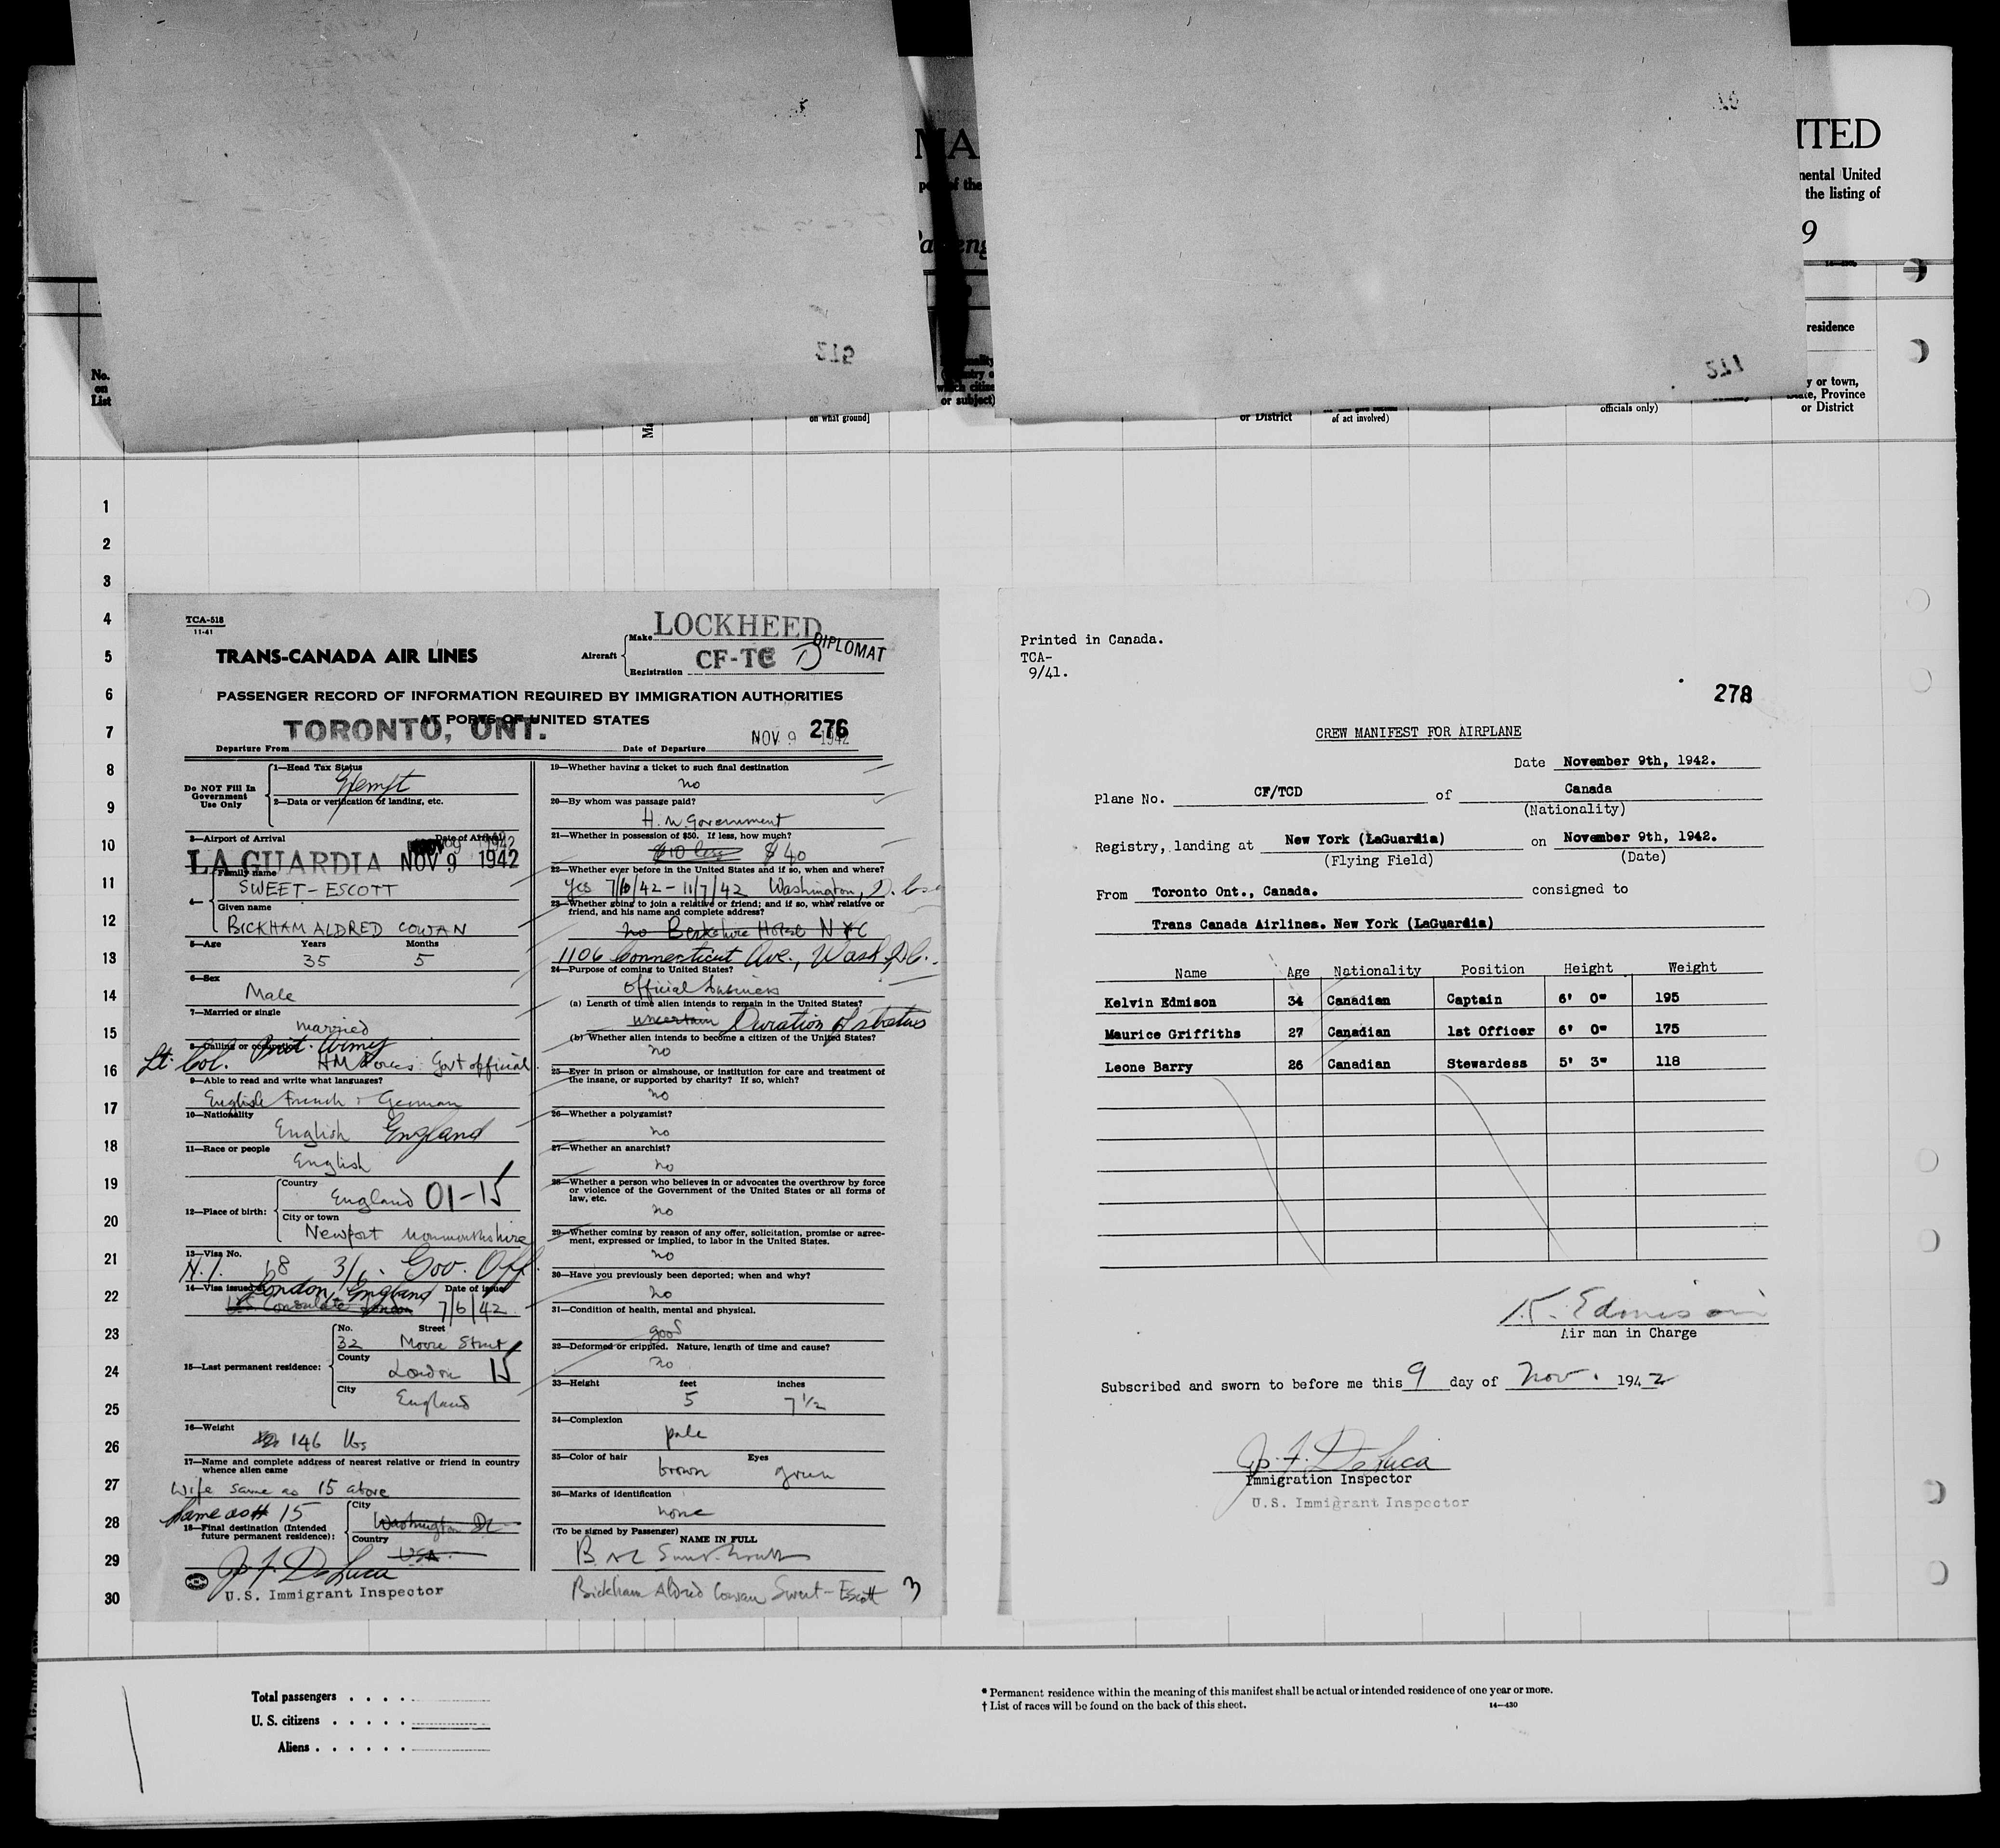 MA
ITED
p of the
nental United
the listing of
9
residence
No.
on
List
or subject)
on what ground]
or District
of act involved)
officials only)
y or town,
State, Province
or District
212
211
1
2
3
4
5
6
7
8
9
10
11
12
13
14
15
16
17
18
19
20
21
22
23
24
25
26
27
28
29
30
TCA-518
11-41
TRANS-CANADA AIR LINES
Aircraft
Make LOCKHEED
Registration CF-TC D
DIPLOMAT
PASSENGER RECORD OF INFORMATION REQUIRED BY IMMIGRATION AUTHORITIES
AT PORTS OF UNITED STATES
276
Departure From TORONTO, ONT.
Date of Departure NOV 9 1942
Do NOT Fill In
Government
Use Only
1—Head Tax Status
Exempt
2—Data or verification of landing, etc.
3—Airport of Arrival
Date of Arrival
LA GUARDIA NOV 9 1942
4—
Family name
SWEET-ESCOTT
Given name
BICKHAM ALDRED COWAN
5—Age Years Months
35 5
6—Sex
Male
7—Married or single
married
8—Calling or occupation
Lt. Col. Brit. Army
HM Forces: Govt official
9—Able to read and write what languages?
English French + German
10—Nationality
English England
11—Race or people
English
12—Place of birth:
Country
England 01-15
City or town
Newport Monmouthshire
13—Visa No.
N.I. 68 3/6. Gov. Off.
14—Visa issued at Date of issue
London, England
US Consulate London 7/6/42
15—Last permanent residence:
No. Street
32 Moore Street
County
London 15
City
England
16—Weight
146 lbs
17—Name and complete address of nearest relative or friend in country
whence alien came
Wife same as 15 above
Same as # 15
18—Final destination (Intended
future permanent residence):
City
Washington DC
Country
USA
Jo. F. DeLuca
U.S. Immigrant Inspector
19—Whether having a ticket to such final destination
no
20—By whom was passage paid?
H.M Government
21—Whether in possession of $50. If less, how much?
$10 less $40
22—Whether ever before in the United States and if so, when and where?
Yes 7/6/42 - 11/7/42 Washington, D.
23—Whether going to join a relative or friend; and if so, what relative or
friend, and his name and complete address?
no Berkshire Hotel NYC
1106 Connecticut Ave., Wash D.C.
24—Purpose of coming to United States?
Official business
(a) Length of time alien intends to remain in the United States?
uncertain Duration of status
(b) Whether alien intends to become a citizen of the United States?
no
25—Ever in prison or almshouse, or institution for care and treatment of
the insane, or supported by charity? If so, which?
no
26—Whether a polygamist?
no
27—Whether an anarchist?
no
28—Whether a person who believes in or advocates the overthrow by force
or violence of the Government of the United States or all forms of
law, etc.
no
29—Whether coming by reason of any offer, solicitation, promise or agree-
ment, expressed or implied, to labor in the United States.
no
30—Have you previously been deported; when and why?
no
31—Condition of health, mental and physical.
good
32—Deformed or crippled. Nature, length of time and cause?
no
33—Height feet inches
5 7 1/2
34—Complexion
pale
35—Color of hair Eyes
brown green
36—Marks of identification
none
(To be signed by Passenger) NAME IN FULL
Bickham Aldred Cowan Sweet-Escott 3
Printed in Canada.
TCA-
9/41.
278
CREW MANIFEST FOR AIRPLANE
Date November 9th, 1942.
Plane No. CF/TCD of Canada
(Nationality)
Registry, landing at New York (LaGuardia) on November 9th, 1942.
(Flying Field) (Date)
From Toronto Ont., Canada. consigned to
Trans Canada Airlines. New York (LaGuardia)
Name Age Nationality Position Height Weight
Kelvin Edmison 34 Canadian Captain 6' 0" 195
Maurice Griffiths 27 Canadian 1st Officer 6' 0" 175
Leone Barry 26 Canadian Stewardess 5' 3" 118
K. Edmison
Air man in Charge
Subscribed and sworn to before me this 9 day of Nov. 1942
Jo. F. DeLuca
Immigration Inspector
U.S. Immigrant Inspector
Total passengers . . . .
U. S. citizens . . . . .
Aliens . . . . . .
* Permanent residence within the meaning of this manifest shall be actual or intended residence of one year or more.
† List of races will be found on the back of this sheet.
14—430